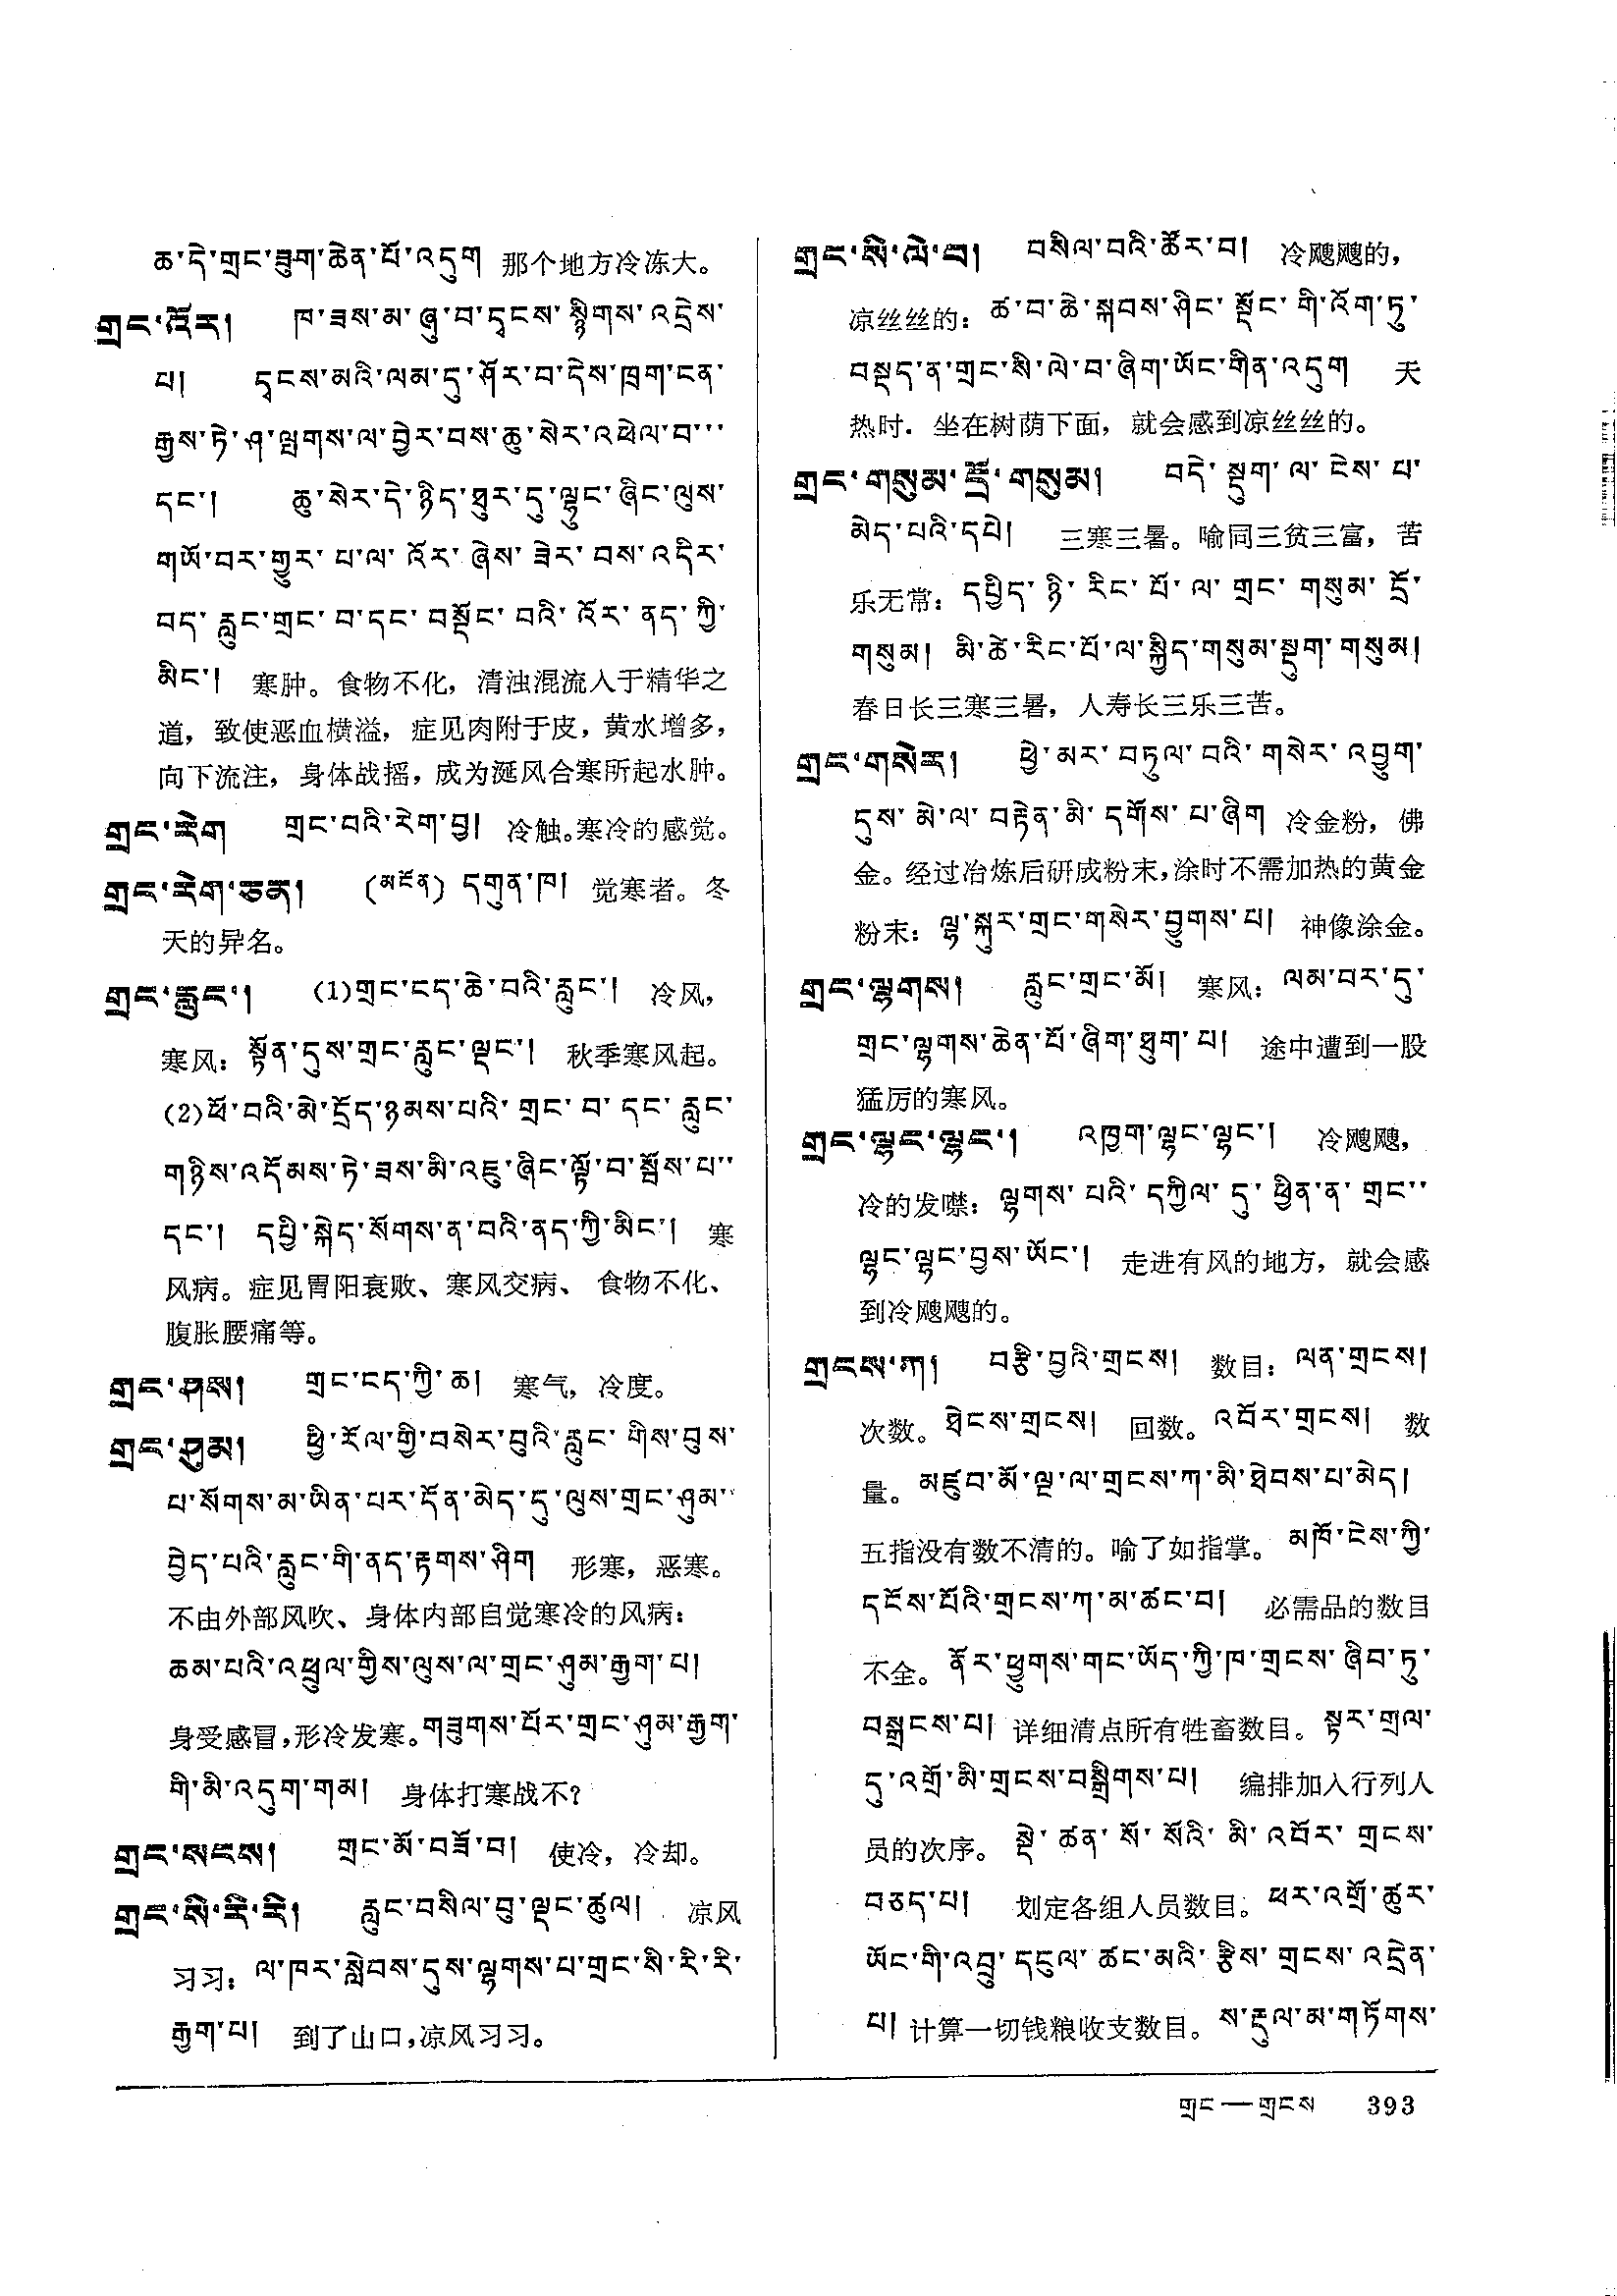 ཆ་དེ་གྲང་ཟུག་ཆེན་པོ་འདུག 那个地方冷冻大。
གྲང་འོར། ཁ་ཟས་མ་ཞུ་བ་དྭངས་སྙིགས་འདྲེས་
པ། དྭངས་མའི་ལམ་དུ་ཤོར་བ་དེས་ཁྲག་ངན་
རྒྱས་ཏེ་ཤ་ལྤགས་ལ་བྱེར་བས་ཆུ་སེར་འཕེལ་བ་་་
དང་། ཆུ་སེར་དེ་ཉིད་ཐུར་དུ་ལྷུང་ཞིང་ལུས་
གཡོ་བར་གྱུར་པ་ལ་འོར་ཞེས་ཟེར་བས་འདིར་
བད་རླུང་གྲང་བ་དང་བསྡོང་བའི་འོར་ནད་ཀྱི་
མིང་། 寒肿。食物不化，清浊混流入于精华之
道，致使恶血横溢，症见肉附于皮，黄水增多，
向下流注，身体战摇，成为涎风合寒所起水肿。
གྲང་རེག གྲང་བའི་རེག་བྱ། 冷触。寒冷的感觉。
གྲང་རེག་ཅན། (མངོན) དགུན་ཁ། 觉寒者。冬
天的异名。
གྲང་རླུང་། (1)གྲང་ངད་ཆེ་བའི་རླུང་། 冷风，
寒风：སྟོན་དུས་གྲང་རླུང་ལྡང་། 秋季寒风起。
(2)ཕོ་བའི་མེ་དྲོད་ཉམས་པའི་གྲང་བ་དང་རླུང་
གཉིས་འདོམས་ཏེ་ཟས་མི་འཇུ་ཞིང་ལྟོ་བ་སྦོས་པ་་
དང་། དཔྱི་སྐེད་སོགས་ན་བའི་ནད་ཀྱི་མིང་། 寒
风病。症见胃阳衰败、寒风交病、食物不化、
腹胀腰痛等。
གྲང་ཤས། གྲང་ངད་ཀྱི་ཆ། 寒气，冷度。
གྲང་ཤུམ། ཕྱི་རོལ་གྱི་བསེར་བུའི་རླུང་གིས་བུས་
པ་སོགས་མ་ཡིན་པར་དོན་མེད་དུ་ལུས་གྲང་ཤུམ་་
བྱེད་པའི་རླུང་གི་ནད་རྟགས་ཤིག 形寒，恶寒。
不由外部风吹、身体内部自觉寒冷的风病：
ཆམ་པའི་འཕྲུལ་གྱིས་ལུས་ལ་གྲང་ཤུམ་རྒྱག་པ།
身受感冒，形冷发寒。གཟུགས་པོར་གྲང་ཤུམ་རྒྱག་
གི་མི་འདུག་གམ། 身体打寒战不？
གྲང་སངས། གྲང་མོ་བཟོ་བ། 使冷，冷却。
གྲང་སི་རི་རི། རླུང་བསིལ་བུ་ལྡང་ཚུལ། 凉风
习习：ལ་ཁར་སླེབས་དུས་ལྷགས་པ་གྲང་སི་རི་རི་
རྒྱག་པ། 到了山口，凉风习习。
གྲང་སི་ལེ་བ། བསིལ་བའི་ཚོར་བ། 冷飕飕的，
凉丝丝的：ཚ་བ་ཆེ་སྐབས་ཤིང་སྡོང་གི་འོག་ཏུ་
བསྡད་ན་གྲང་སི་ལེ་བ་ཞིག་ཡོང་གིན་འདུག 天
热时．坐在树荫下面，就会感到凉丝丝的。
གྲང་གསུམ་དྲོ་གསུམ། བདེ་སྡུག་ལ་ངེས་པ་
མེད་པའི་དཔེ། 三寒三暑。喻同三贫三富，苦
乐无常：དཔྱིད་ཉི་རིང་པོ་ལ་གྲང་གསུམ་དྲོ་
གསུམ། མི་ཚེ་རིང་པོ་ལ་སྐྱིད་གསུམ་སྡུག་གསུམ།
春日长三寒三暑，人寿长三乐三苦。
གྲང་གསེར། ཕྱེ་མར་བཏུལ་བའི་གསེར་འབྱུག་
དུས་མེ་ལ་བརྟེན་མི་དགོས་པ་ཞིག 冷金粉，佛
金。经过冶炼后研成粉末，涂时不需加热的黄金
粉末：ལྷ་སྐུར་གྲང་གསེར་བྱུགས་པ། 神像涂金。
གྲང་ལྷགས། རླུང་གྲང་མོ། 寒风：ལམ་བར་དུ་
གྲང་ལྷགས་ཆེན་པོ་ཞིག་ཐུག་པ། 途中遭到一股
猛厉的寒风。
གྲང་ལྷང་ལྷང་། འཁྱག་ལྷང་ལྷང་། 冷飕飕，
冷的发噤：ལྷགས་པའི་དཀྱིལ་དུ་ཕྱིན་ན་གྲང་་
ལྷང་ལྷང་བྱས་ཡོང་། 走进有风的地方，就会感
到冷飕飕的。
གྲངས་ཀ། བརྩི་བྱའི་གྲངས། 数目：ལན་གྲངས།
次数。ཐེངས་གྲངས། 回数。འབོར་གྲངས། 数
量。མཛུབ་མོ་ལྔ་ལ་གྲངས་ཀ་མི་ཐེབས་པ་མེད།
五指没有数不清的。喻了如指掌。མཁོ་ངེས་ཀྱི་
དངོས་པོའི་གྲངས་ཀ་མ་ཚང་བ། 必需品的数目
不全。ནོར་ཕྱུགས་གང་ཡོད་ཀྱི་ཁ་གྲངས་ཞིབ་ཏུ་
བསྒྲངས་པ། 详细清点所有牲畜数目。སྟར་གྲལ་
དུ་འགྲོ་མི་གྲངས་བསྒྲིགས་པ། 编排加入行列人
员的次序。སྡེ་ཚན་སོ་སོའི་མི་འབོར་གྲངས་
བཅད་པ། 划定各组人员数目。ཕར་འགྲོ་ཚུར་
ཡོང་གི་འབྲུ་དངུལ་ཚང་མའི་རྩིས་གྲངས་འདྲེན་
པ། 计算一切钱粮收支数目。ས་རྡུལ་མ་གཏོགས་
གྲང—གྲངས 393